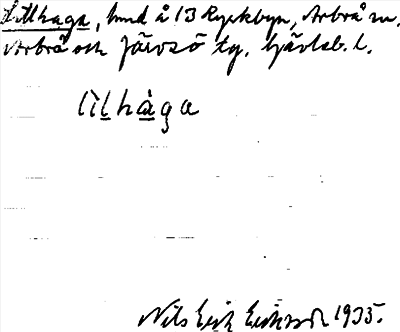 Lillhaga, hmd å 13 Kyrkbyn, Arbrå sn.
Arbrå och Järvsö tg. Gävleb. l.
lìlhàga
Nils Erik Eriksson 1935.